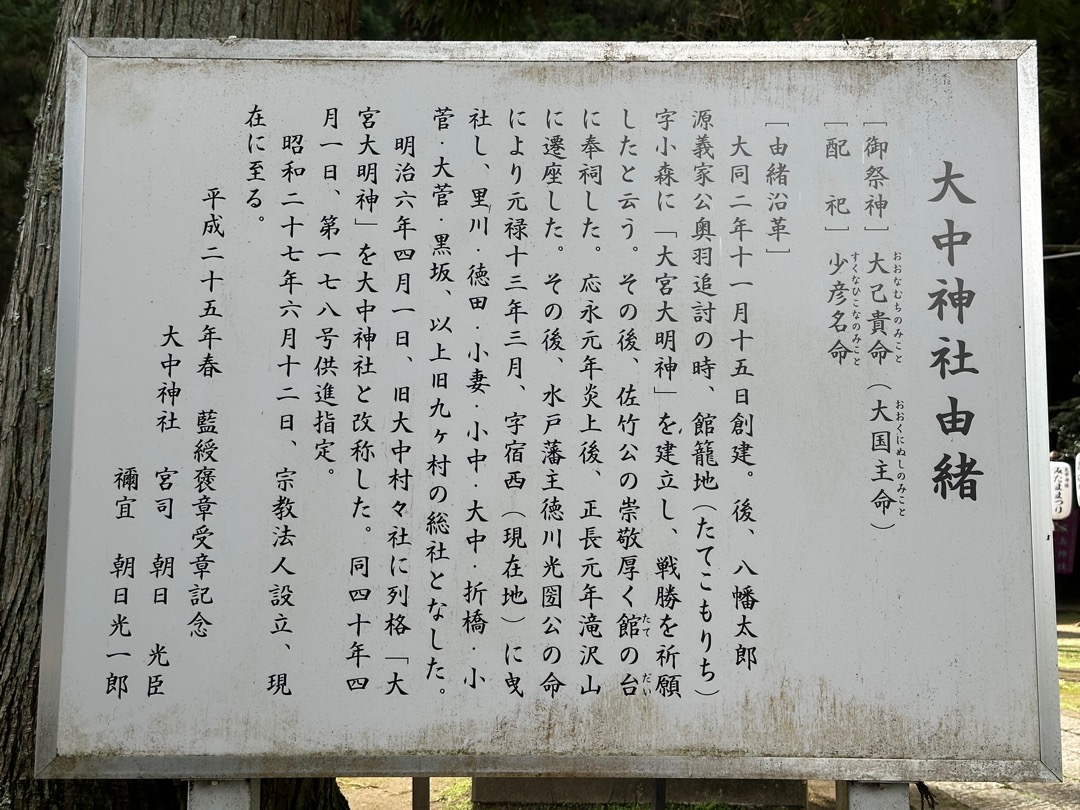 大中神社由緒
［御祭神］大己貴命（大国主命）
おおなむちのみこと
おおくにぬしのみこと
［配　祀］少彦名命
すくなひこなのみこと
［由緒沿革］
大同二年十一月十五日創建。後、八幡太郎
源義家公奥羽追討の時、館籠地（たてこもりち）
字小森に「大宮大明神」を建立し、戦勝を祈願
したと云う。その後、佐竹公の崇敬厚く館の台
たて
だい
に奉祠した。応永元年炎上後、正長元年滝沢山
に遷座した。その後、水戸藩主徳川光圀公の命
により元禄十三年三月、字宿西（現在地）に曳
社し、里川・徳田・小妻・小中・大中・折橋・小
菅・大菅・黒坂、以上旧九ヶ村の総社となした。
明治六年四月一日、旧大中村々社に列格「大
宮大明神」を大中神社と改称した。同四十年四
月一日、第一七八号供進指定。
昭和二十七年六月十二日、宗教法人設立、現
在に至る。
平成二十五年春　藍綬褒章受章記念
大中神社　宮司　朝日　光臣
禰宜　朝日光一郎
みたままつり